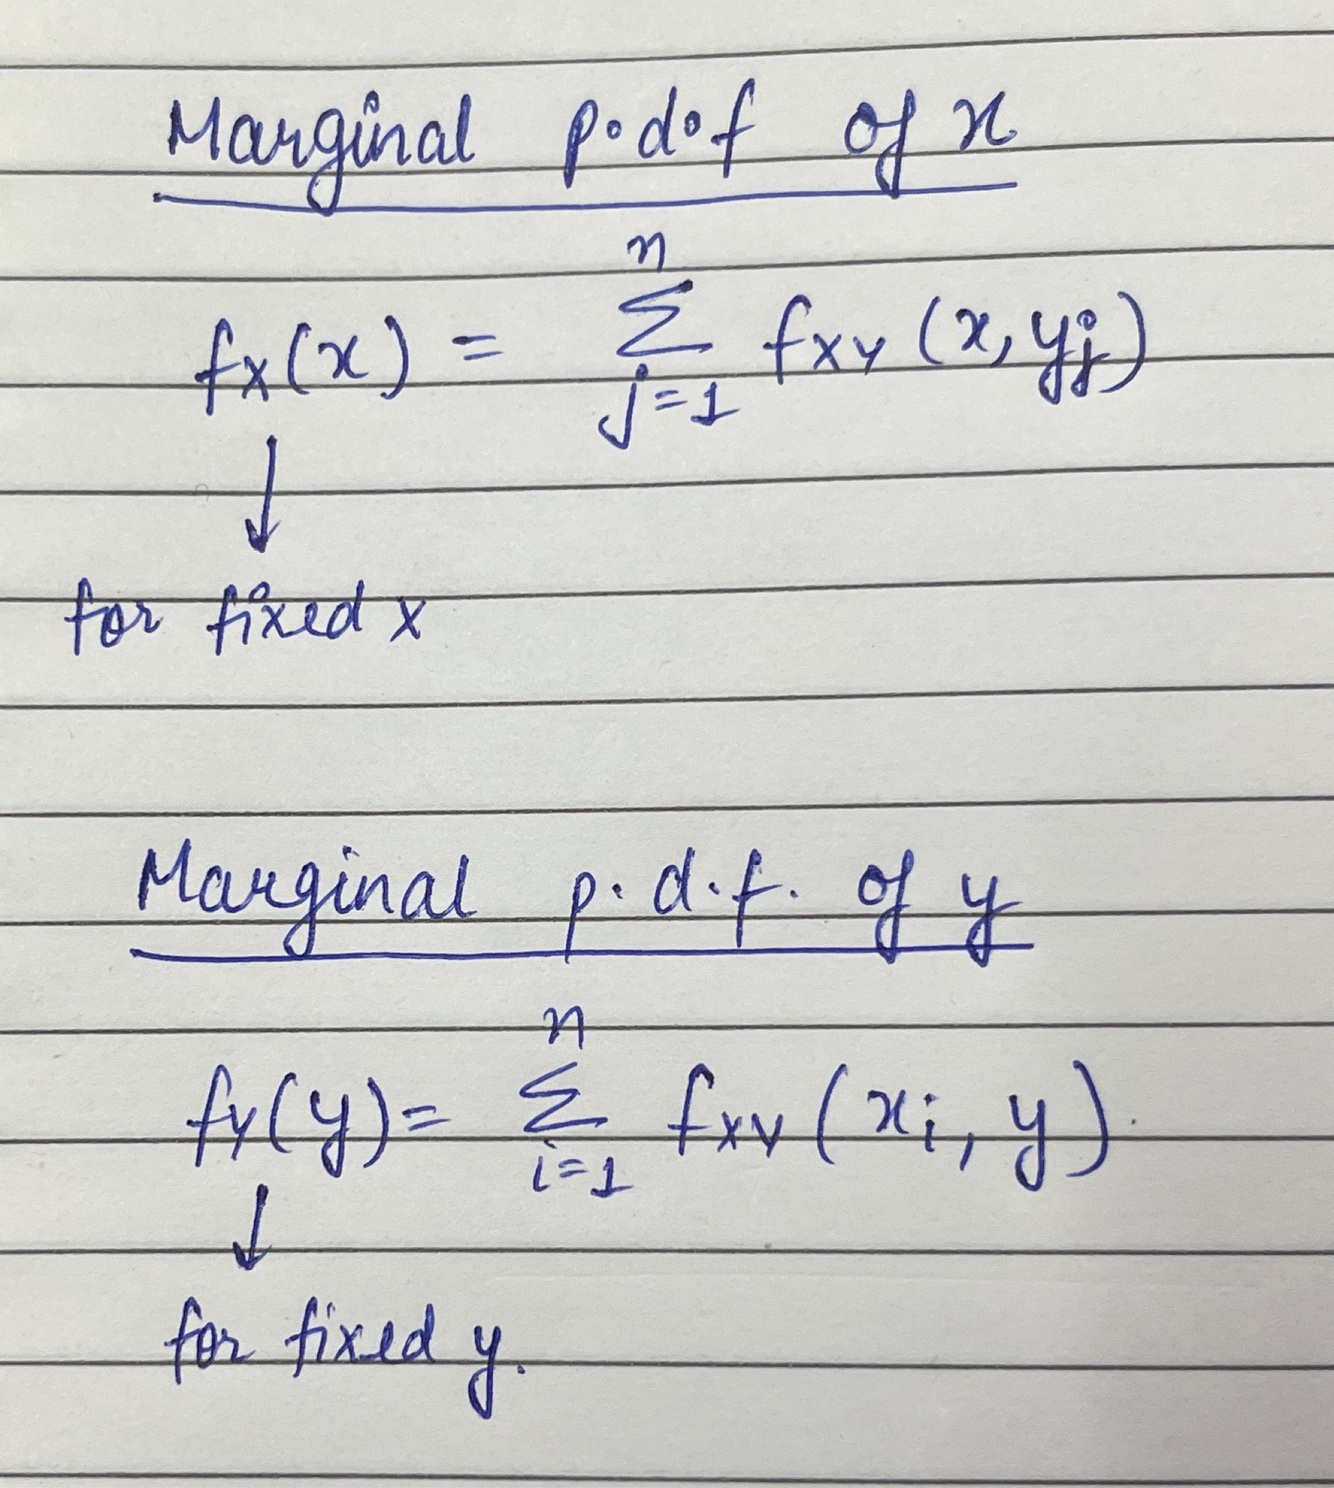 Marginal p.d.f of x
fX(x) = n∑j=1 fXY (x, yj)
↓
for fixed x
Marginal p.d.f. of y
fY(y) = n∑i=1 fXY (xi, y).
↓
for fixed y.